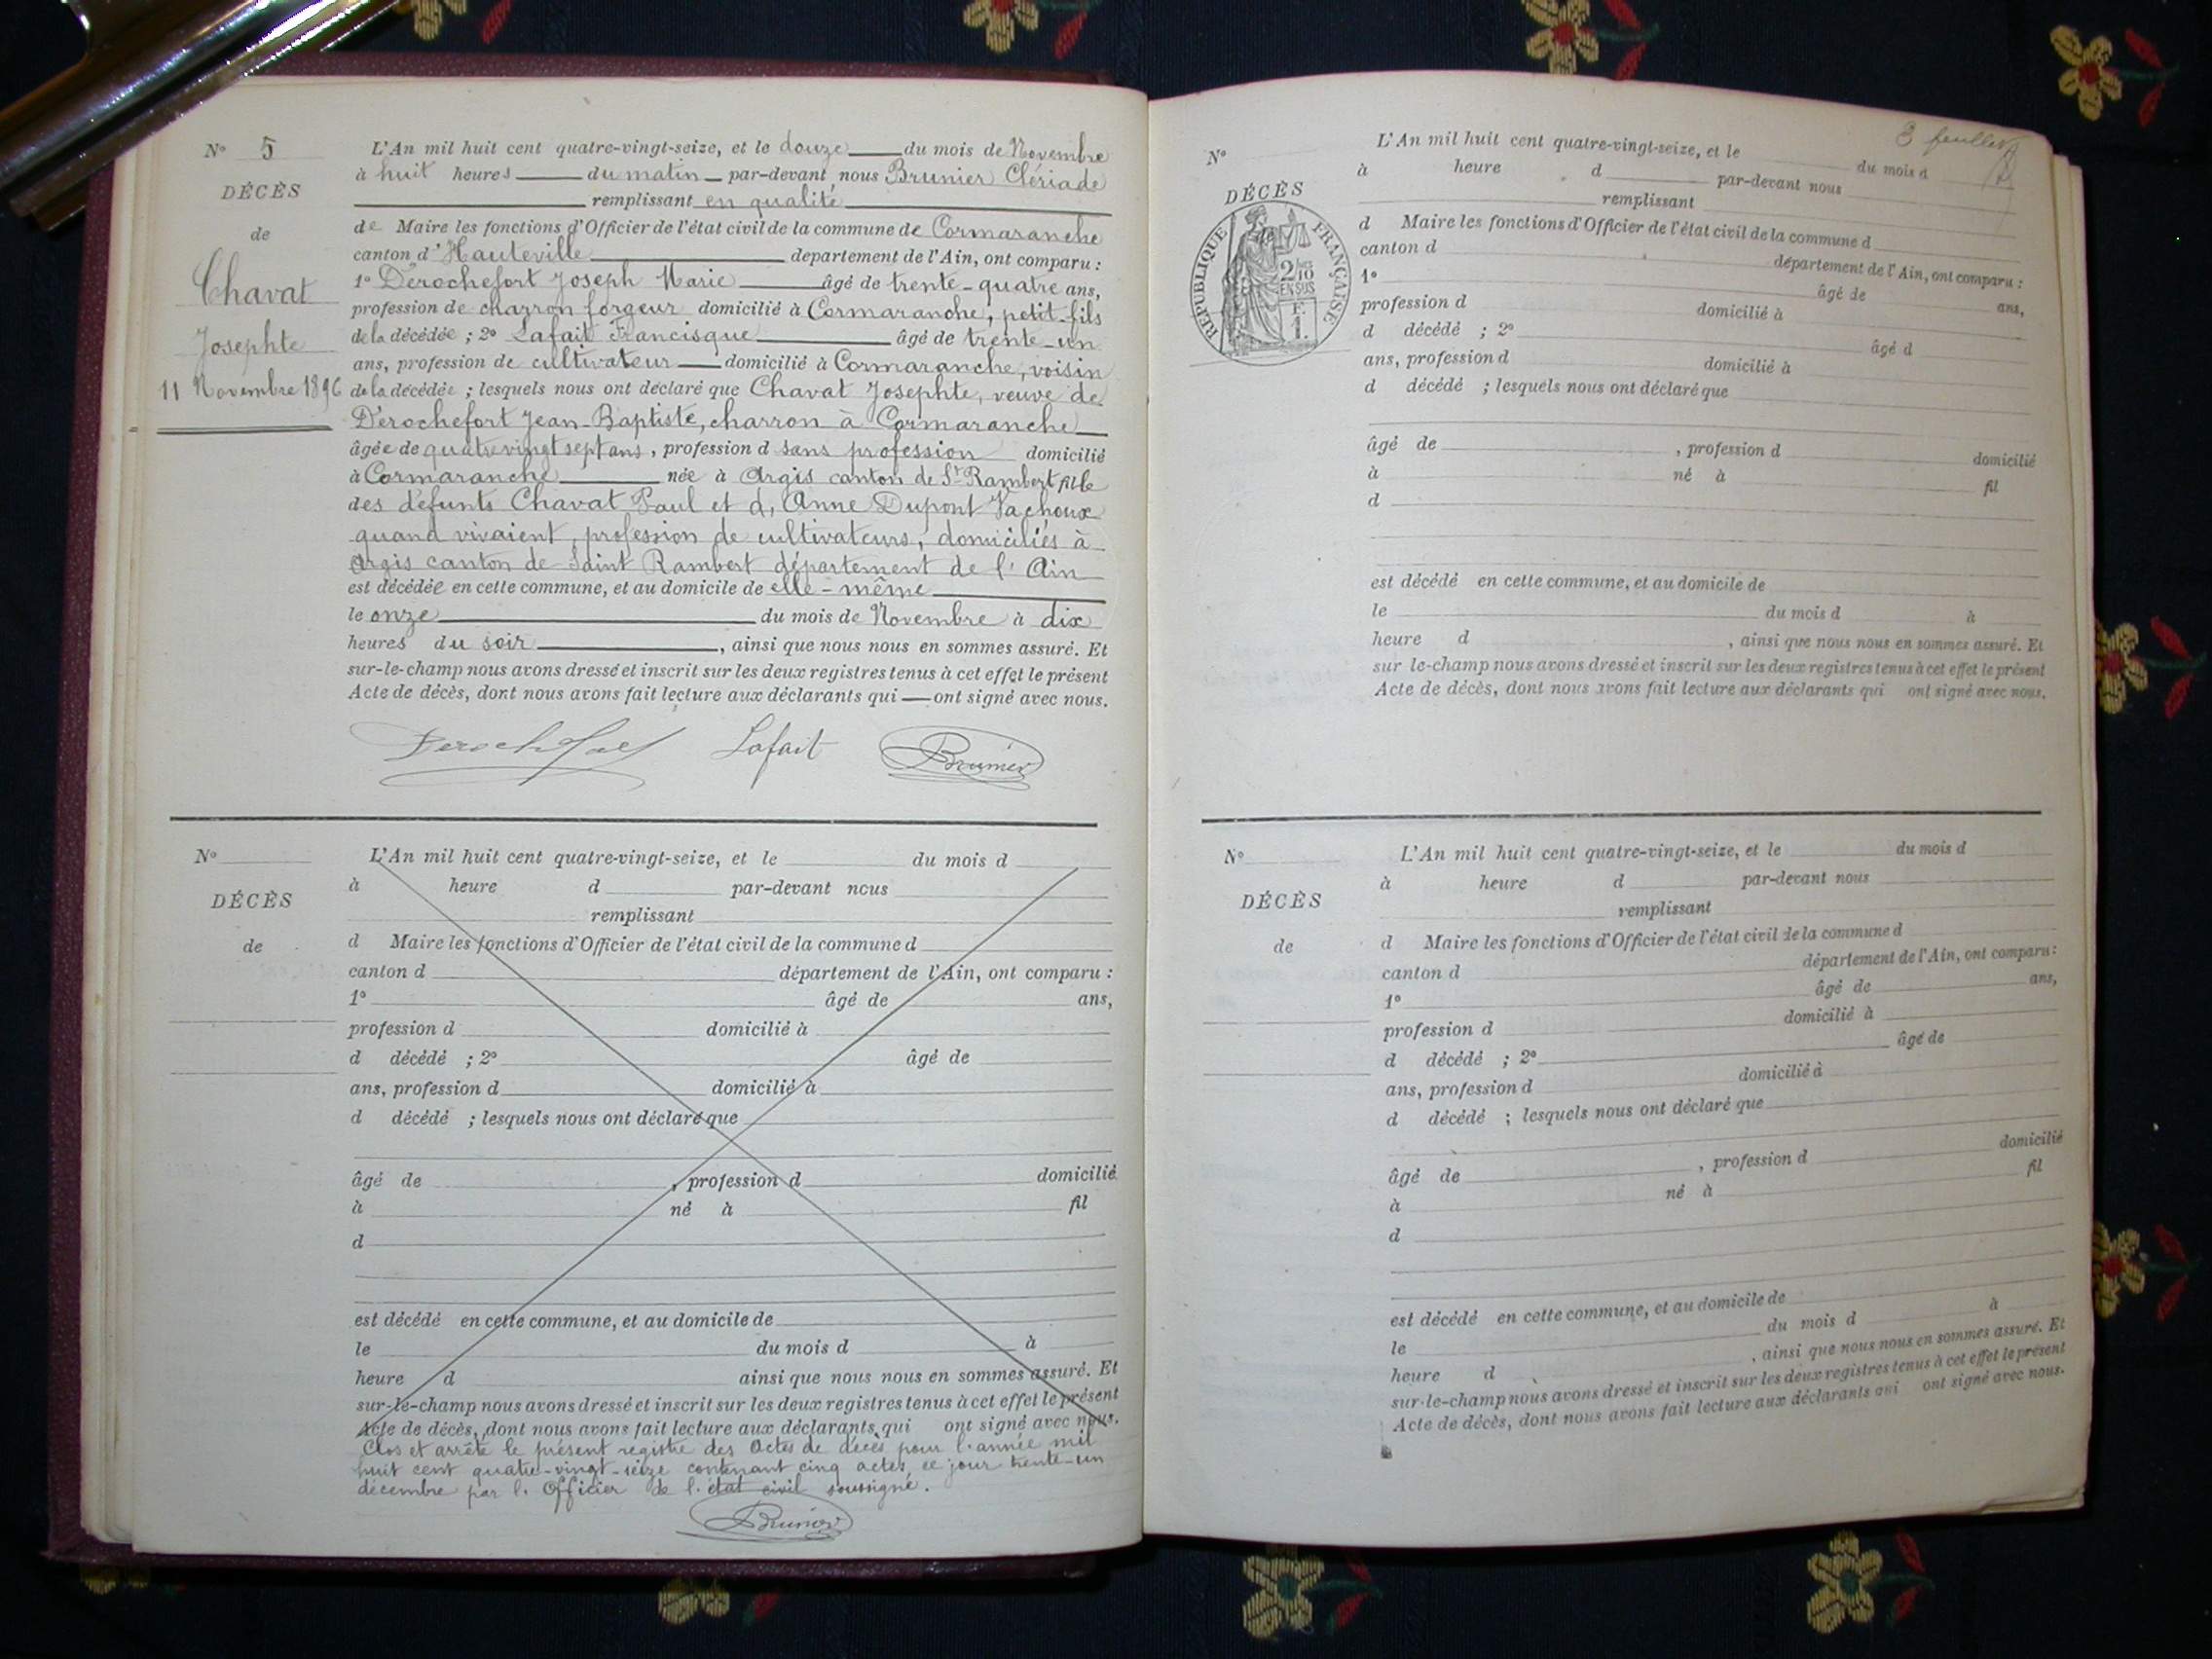 N° 5
DÉCÈS
de
Chavat
Josephte
11 Novembre 1896
L'An mil huit cent quatre-vingt-seize, et le douze du mois de Novembre
à huit heures du matin par-devant nous Brunier Clériade
remplissant en qualité
de Maire les fonctions d'Officier de l'état civil de la commune de Cormaranche
canton d'Hauteville département de l'Ain, ont comparu :
1° Derochefort Joseph Marie âgé de trente-quatre ans,
profession de charron forgeur domicilié à Cormaranche, petit-fils
de la décédée ; 2° Lafait Francisque âgé de trente-un
ans, profession de cultivateur domicilié à Cormaranche, voisin
de la décédée ; lesquels nous ont déclaré que Chavat Josephte, veuve de
Derochefort Jean-Baptiste, charron à Cormaranche
âgée de quatre vingt sept ans, profession d sans profession domicilié
à Cormaranche née à Argis canton de St Rambert fille
des défunts Chavat Paul et d, Anne Dupont Vachoux
quand vivaient, profession de cultivateurs, domiciliés à
Argis canton de Saint Rambert département de l'Ain
est décédée en cette commune, et au domicile de elle-même
le onze du mois de Novembre à dix
heures du soir, ainsi que nous nous en sommes assuré. Et
sur-le-champ nous avons dressé et inscrit sur les deux registres tenus à cet effet le présent
Acte de décès, dont nous avons fait lecture aux déclarants qui — ont signé avec nous.
Derochefort Lafait Brunier
N°
DÉCÈS
de
L'An mil huit cent quatre-vingt-seize, et le du mois d
à heure d par-devant nous
remplissant
d Maire les fonctions d'Officier de l'état civil de la commune d
canton d département de l'Ain, ont comparu :
1° âgé de ans,
profession d domicilié à
d décédé ; 2° âgé de
ans, profession d domicilié à
d décédé ; lesquels nous ont déclaré que
âgé de , profession d domicilié
à né à fil
d
est décédé en cette commune, et au domicile de
le du mois d à
heure d ainsi que nous nous en sommes assuré. Et
sur-le-champ nous avons dressé et inscrit sur les deux registres tenus à cet effet le présent
Acte de décès, dont nous avons fait lecture aux déclarants qui ont signé avec nous.
Clos et arrêté le présent registre des Actes de décès pour l'année mil
huit cent quatre-vingt-seize contenant cinq actes, ce jour trente-un
décembre par l'Officier de l'état civil soussigné.
Brunier
3 feuillet
N°
DÉCÈS
RÉPUBLIQUE FRANÇAISE
2/10
EN SUS
F.
1.
L'An mil huit cent quatre-vingt-seize, et le du mois d
à heure d par-devant nous
remplissant
d Maire les fonctions d'Officier de l'état civil de la commune d
canton d département de l'Ain, ont comparu :
1° âgé de ans,
profession d domicilié à
d décédé ; 2° âgé d
ans, profession d domicilié à
d décédé ; lesquels nous ont déclaré que
âgé de , profession d domicilié
à né à fil
d
est décédé en cette commune, et au domicile de
le du mois d à
heure d , ainsi que nous nous en sommes assuré. Et
sur-le-champ nous avons dressé et inscrit sur les deux registres tenus à cet effet le présent
Acte de décès, dont nous avons fait lecture aux déclarants qui ont signé avec nous.
N°
DÉCÈS
de
L'An mil huit cent quatre-vingt-seize, et le du mois d
à heure d par-devant nous
remplissant
d Maire les fonctions d'Officier de l'état civil de la commune d
canton d département de l'Ain, ont comparu :
1° âgé de ans,
profession d domicilié à
d décédé ; 2° âgé de
ans, profession d domicilié à
d décédé ; lesquels nous ont déclaré que
âgé de , profession d domicilié
à né à fil
d
est décédé en cette commune, et au domicile de
le du mois d à
heure d , ainsi que nous nous en sommes assuré. Et
sur-le-champ nous avons dressé et inscrit sur les deux registres tenus à cet effet le présent
Acte de décès, dont nous avons fait lecture aux déclarants qui ont signé avec nous.